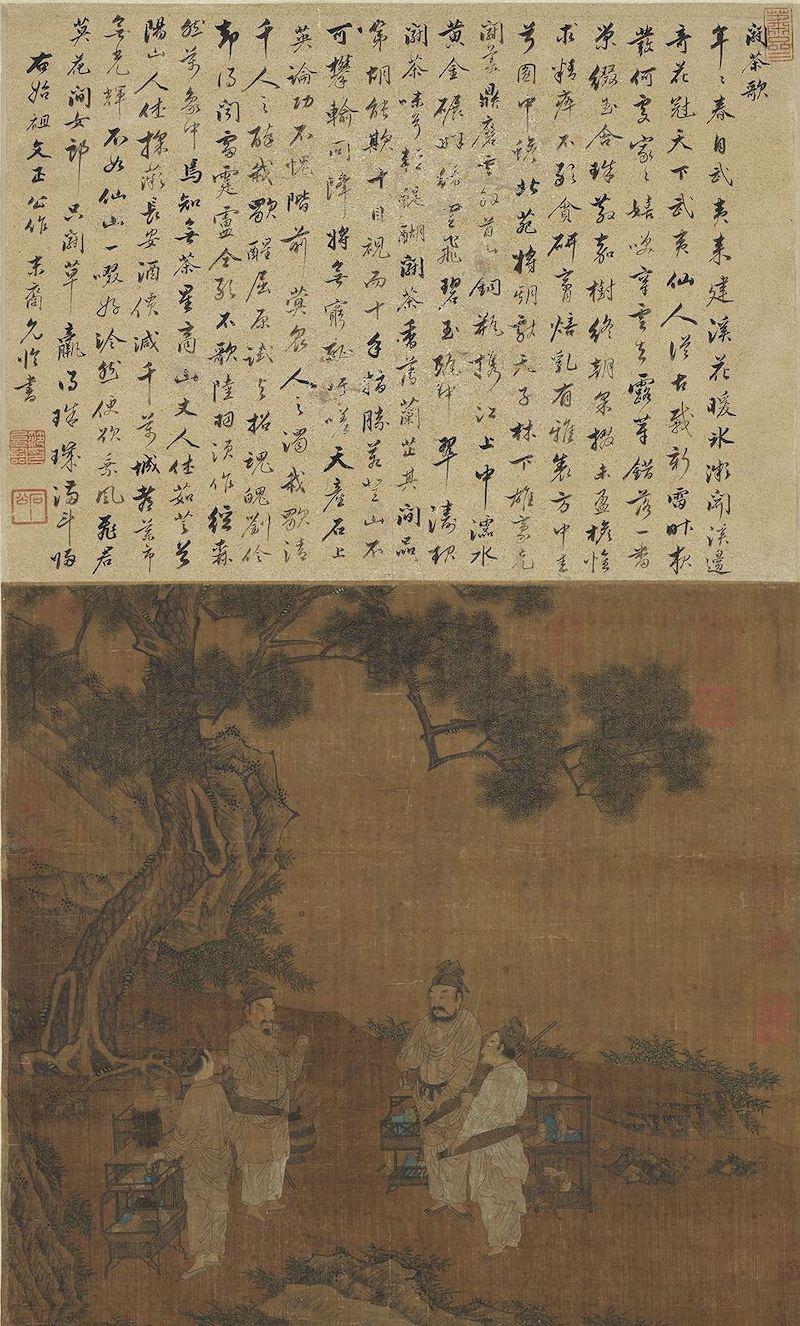 鬪茶歌
年〻春自武夷来建溪花暖冰漸開溪邊
奇花冠天下武夷仙人從古栽新雷昨夜
發何處家〻嬉笑穿雲去露芽錯落一番
榮綴玉含珠散嘉樹終朝采掇未盈襜惟
求精粹不敢貪研膏焙乳有雅製方中圭
兮圓中蟾北苑將期獻天子林下雄豪先
鬪美鼎磨雲外首山銅瓶攜江上中濡水
黃金碾畔綠塵飛碧玉甌中翠濤起
鬪茶味兮輕醍醐鬪茶香薄蘭芷其間品
第胡能欺十目視而十手指勝若登山不
可攀輸同降將無窮恥吁嗟天產石上
英論功不愧階前蓂眾人之濁我歌清
千人之醉我歌醒屈原試與招魂魄劉伶
却得聞雷霆盧仝敢不歌陸羽須作經森
然萬象中焉知無茶星商山丈人休茹芝首
陽山人休採薇長安酒價減千萬城都藥市
無光輝不如仙山一啜好泠然便欲乘風飛君
莫花間女郎只鬪草贏得珠璣滿斗歸
右始祖文正公作末裔允臨書